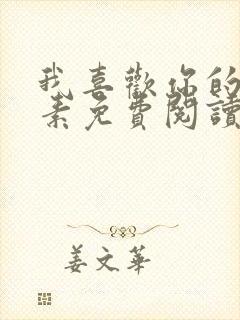 我喜歡你的
素免費閱讀
姜文華